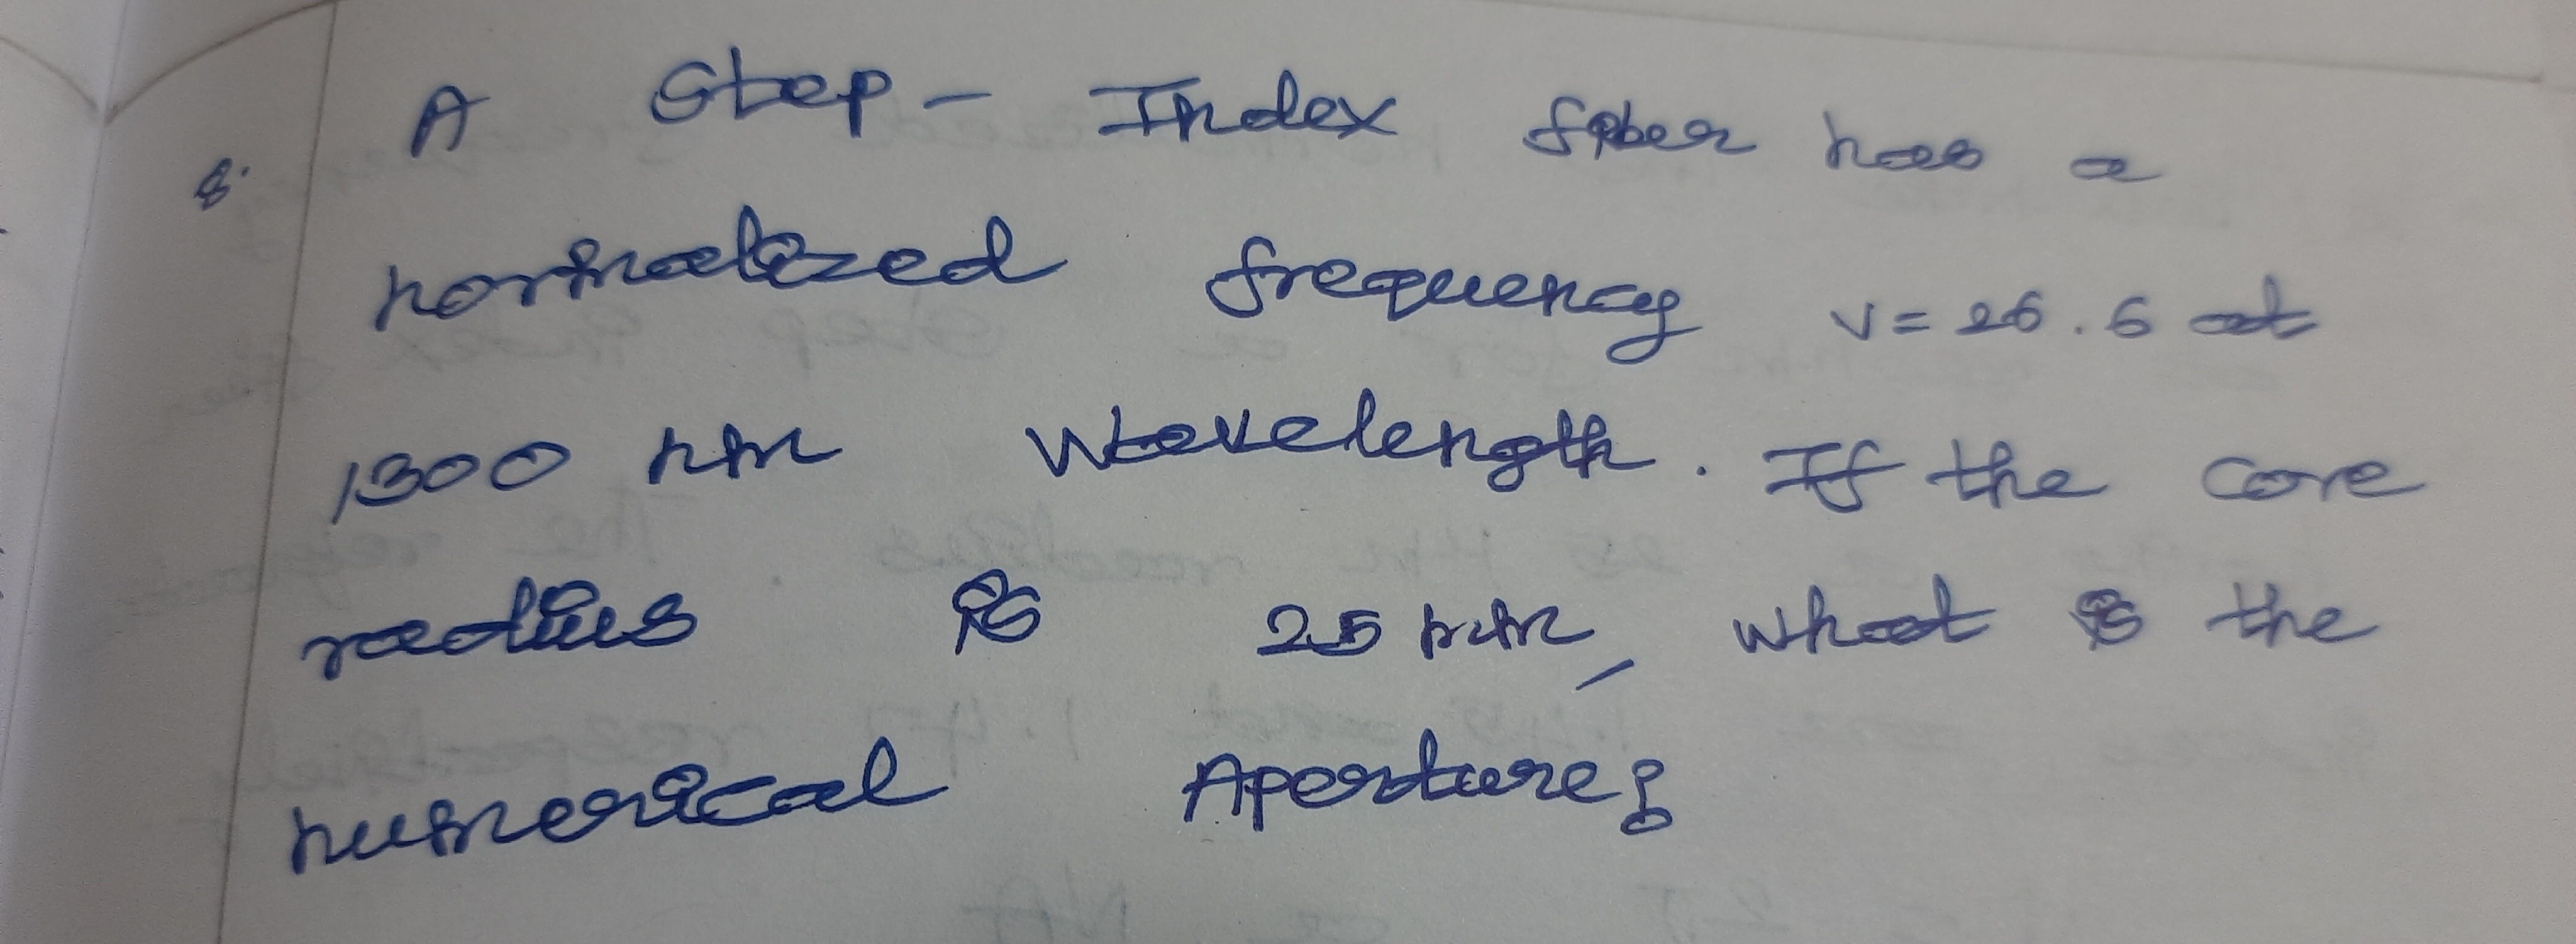 8. A Step - Index fiber has a
normalized frequency V = 26.6 at
1300 nm Wavelength. If the core
radius is 25 mm, what is the
numerical Aperture?